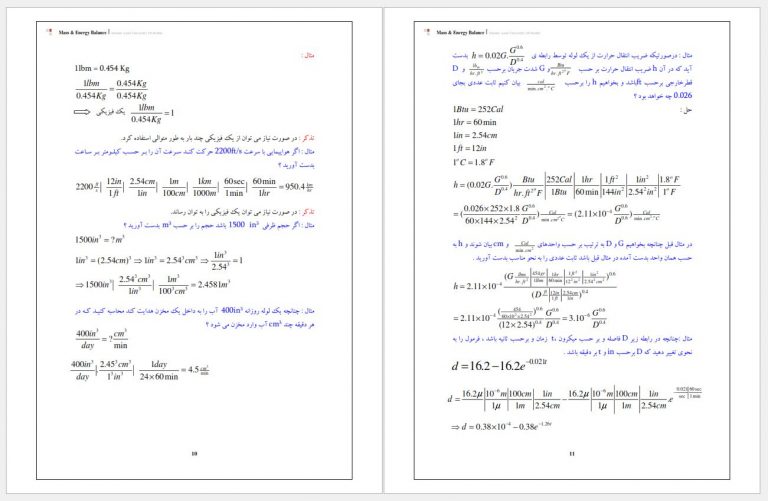 Mass & Energy Balance |
مثال :
1lbm = 0.454 Kg
1lbm / 0.454Kg = 0.454Kg / 0.454Kg
⇒ یک فیزیکی 1lbm / 0.454Kg = 1
تذکر : در صورت نیاز می توان از یک فیزیکی چند بار به طور متوالی استفاده کرد.
مثال : اگر هواپیمایی با سرعت 2200ft/s حرکت کند سرعت آن را بر حسب کیلومتر بر ساعت
بدست آورید ؟
2200 ft/s | 12in / 1ft | 2.54cm / 1in | 1m / 100cm | 1km / 1000m | 60sec / 1min | 60min / 1hr = 950.4 km/hr
تذکر : در صورت نیاز می توان یک فیزیکی را به توان رساند.
مثال : اگر حجم ظرفی 1500 in³ باشد حجم را بر حسب m³ بدست آورید ؟
1500in³ = ?m³
1in³ = (2.54cm)³ ⇒ 1in³ = 2.54³cm³ ⇒ 1in³ / 2.54³ = 1
⇒ 1500in³ | 2.54³cm³ / 1in³ | 1m³ / 100³cm³ = 2.4581m³
مثال : چنانچه یک لوله روزانه 400in³ آب را به داخل یک مخزن هدایت کند محاسبه کنید که در
هر دقیقه چند cm³ آب وارد مخزن می شود ؟
400in³ / day = ? cm³ / min
400in³ / day | 2.45³cm³ / 1³in³ | 1day / 24×60min = 4.5 cm³/min
10
Mass & Energy Balance |
مثال : درصورتیکه ضریب انتقال حرارت از یک لوله توسط رابطه ی h = 0.02G. G^0.6 / D^0.4 بدست
آید که در آن h ضریب انتقال حرارت بر حسب Btu / hr.ft²°F و G شدت جریان برحسب lbm / hr.ft² و D
قطرخارجی برحسب ft باشد و بخواهیم h را برحسب cal / min.cm².°C بیان کنیم ثابت عددی بجای
0.026 چه خواهد بود ؟
حل :
1Btu = 252Cal
1hr = 60min
1in = 2.54cm
1ft = 12in
1°C = 1.8°F
h = (0.02G. G^0.6 / D^0.4) Btu / hr.ft²°F | 252Cal / 1Btu | 1hr / 60min | 1ft² / 144in² | 1in² / 2.54²in² | 1.8°F / 1°C
= (0.026×252×1.8 / 60×144×2.54² G^0.6 / D^0.4) Cal / min.cm²°C = (2.11×10⁻⁴ G^0.6 / D^0.6) Cal / min.cm²°C
در مثال قبل چنانچه بخواهیم G و D به ترتیب بر حسب واحدهای Gal / min.cm² و cm بیان شوند و h به
حسب همان واحد بدست آمده در مثال قبل باشد ثابت عددی را به نحو مناسب بدست آورید .
h = 2.11×10⁻⁴ (G lbm / hr.ft² | 454gr / 1lbm | 1hr / 60min | 1ft² / 12²in² | 1in² / 2.54²cm²)^0.6 / (D ft | 12in / 1ft | 2.54cm / 1in)^0.4
= 2.11×10⁻⁴ (454 / 60×12²×2.54²)^0.6 / (12×2.54)^0.4 G^0.6 / D^0.4 = 3.10⁻⁶ G^0.6 / D^0.4
مثال :چنانچه در رابطه زیر D فاصله و بر حسب میکرون ،t زمان و برحسب ثانیه باشد ، فرمول را به
نحوی تغییر دهید که D برحسب in و t بر دقیقه باشد .
d = 16.2 − 16.2e^−0.021t
d = 16.2μ | 10⁻⁶m / 1μ | 100cm / 1m | 1in / 2.54cm − 16.2μ | 10⁻⁶m / 1μ | 100cm / 1m | 1in / 2.54cm .e^−0.021 / sec | 60sec / 1min
⇒ d = 0.38×10⁻⁴ − 0.38e^−1.26t
11